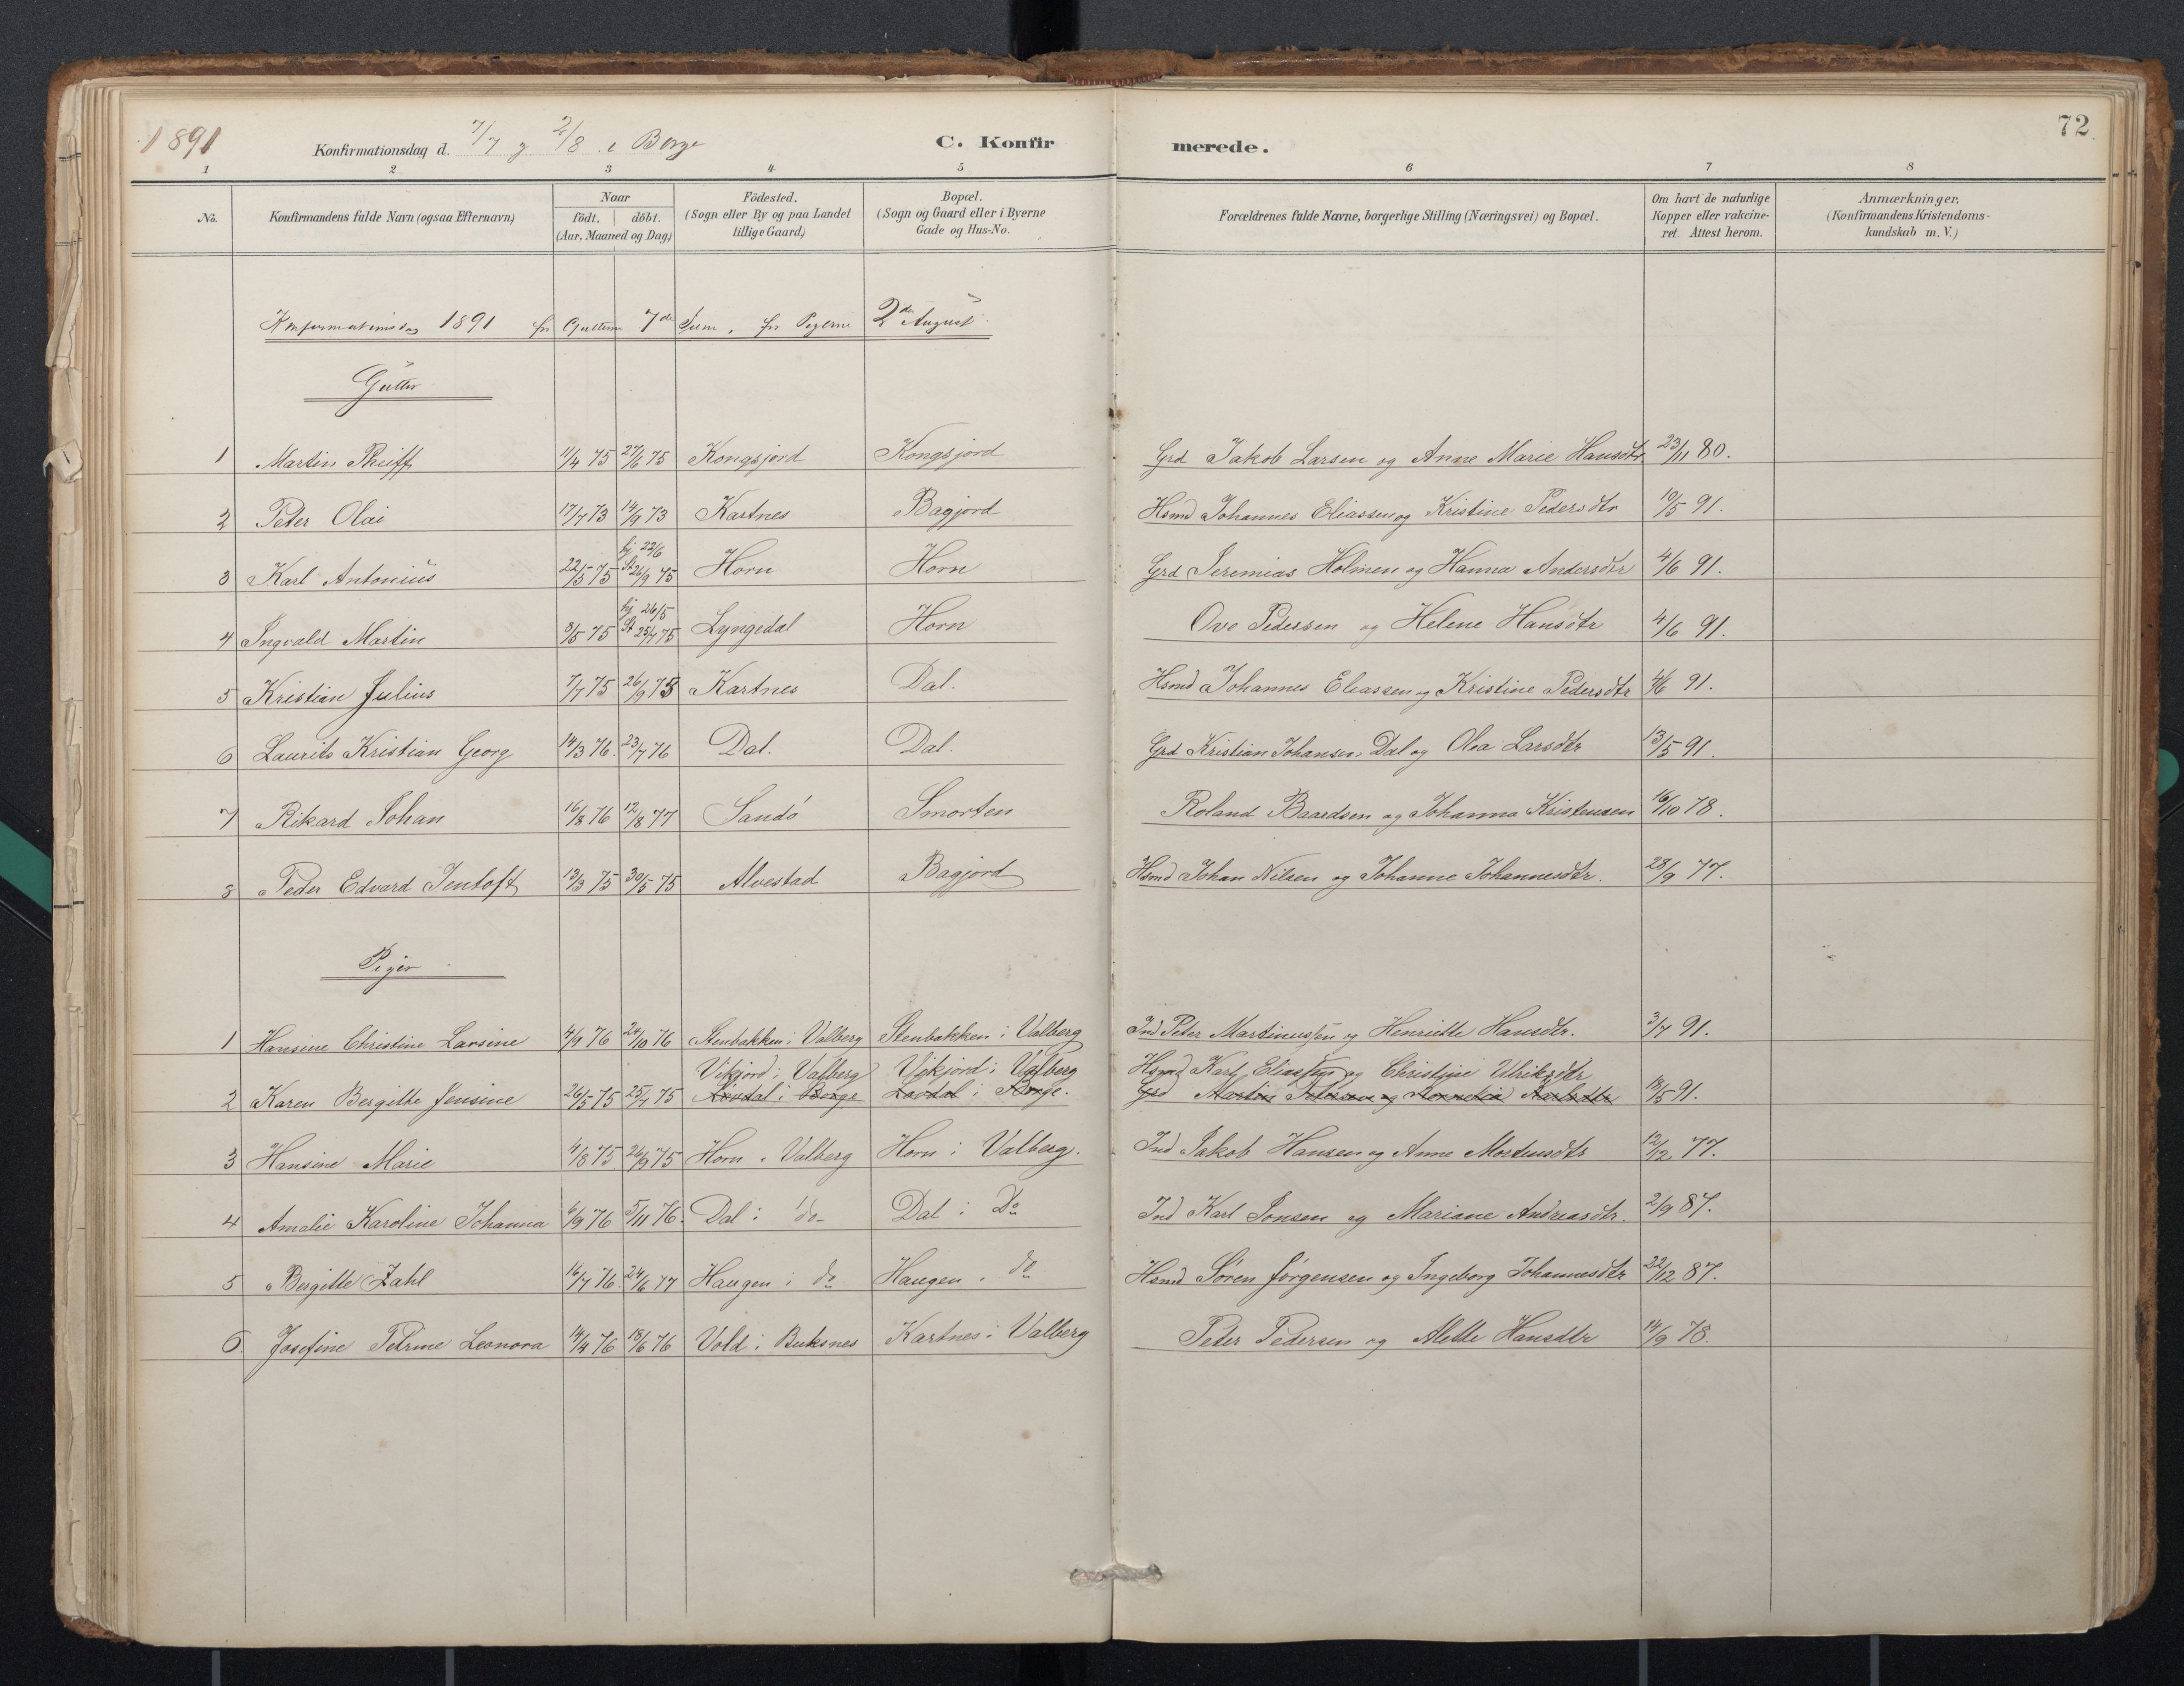 1891 Konfirmationsdag d. 7/7 og 2/8 i Borge C. Konfirmerede. 72.
1 2 3 4 5 6 7 8
No. Konfirmandens fulde Navn (ogsaa Efternavn) Naar födt. döbt. (Aar, Maaned og Dag) Födested. (Sogn eller By og paa Landet tillige Gaard) Bopæl. (Sogn og Gaard eller i Byerne Gade og Hus-No. Forældrenes fulde Navne, borgerlige Stilling (Næringsvei) og Bopæl. Om havt de naturlige Kopper eller vakcineret. Attest herom. Anmærkninger. (Konfirmandens Kristendomskundskab m. V.)
Konfirmationsdag 1891 for Gutterne 7de Juni, for Pigerne 2den August
Gutter
1 Martin 11/4 75 27/6 75 Kongsjord Kongsjord Grd Jakob Larsen og Anne Marie Hansdtr. 23/11 80.
2 Peter Olai 17/7 73 14/9 73 Kartnes Bagjord Hsmd Johannes Eliassen og Kristine Pedersdtr 10/5 91.
3 Karl Antonius 22/5 75 hj 22/6 St 26/9 75 Horn Horn Grd Jeremias Holmen og Hanna Andersdtr 4/6 91.
4 Ingvald Martin 8/5 75 hj 26/5 St 25/7 75 Lyngedal Horn Ove Pedersen og Helene Hansdtr 4/6 91.
5 Kristian Julius 7/7 75 26/9 75 Kartnes Dal. Hsmd Johannes Eliassen og Kristine Pedersdtr 4/6 91.
6 Laurits Kristian Georg 14/3 76. 23/7 76 Dal. Dal. Grd Kristian Johansen Dal og Olea Larsdtr 13/5 91.
7 Rikard Johan 16/8 76 12/8 77 Sandö Smorten Roland Baardsen og Johanna Kristensen 16/10 78.
8 Peder Edvard Jentoft 13/3 75 30/5 75 Alvestad Bagjord Hsmd Johan Nilsen og Johanne Johannesdtr. 28/9 77.
Piger
1 Hansine Christine Larsine 4/9 76 24/10 76 Stenbakken i Valberg Stenbakken i Valberg Ind Peter Martinussen og Henriette Hansdtr. 3/7 91.
Vikjord i Valberg Vikjord i Valberg Hsmd Karl Eliassen og Christine Ulriksdtr
2 Karen Bergitte Jensine 26/5 75 25/7 75 Lövdal i Borge Lövdal i Borge. Grd Martin Petersen og Karlsdtr 18/5 91.
3 Hansine Marie 4/8 75 26/9 75 Horn i Valberg Horn i Valberg. Ind Jakob Hansen og Anne Mortensdtr 12/12 77.
4 Amalie Karoline Johanna 6/9 76 5/11 76. Dal i do Dal i Do Ind Karl Jonsen og Mariane Andreasdtr. 2/9 87.
5 Bergitte Zahl 16/7 76. 24/6 77 Haugen i do Haugen i do Hsmd Sören Jörgensen og Ingeborg Johannesdtr 22/12 87.
6. Josefine Petrine Leonora 14/4 76 18/6 76 Vold i Buksnes Kartnes i Valberg Peter Pedersen og Alette Hansdtr 14/9 78.